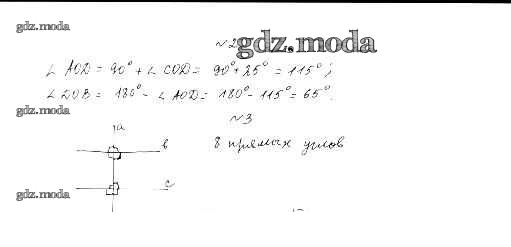 gdz.moda
№2
gdz.moda
∠ AOD = 90° + ∠ COD = 90° + 25° = 115°;
∠ DOB = 180° - ∠ AOD = 180° - 115° = 65°.
gdz.moda
№3
a
b
8 прямых углов
c
gdz.moda